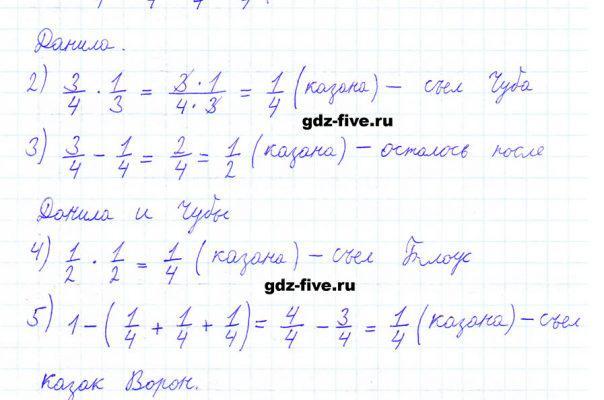 Данила.
2) 3/4 · 1/3 = 3·1/4·3 = 1/4 (казана) – съел Чуба
gdz-five.ru
3) 3/4 – 1/4 = 2/4 = 1/2 (казана) – осталось после
Данила и Чубы
4) 1/2 · 1/2 = 1/4 (казана) – съел Белоус
gdz-five.ru
5) 1 – (1/4 + 1/4 + 1/4) = 4/4 – 3/4 = 1/4 (казана) – съел
казак Ворон.